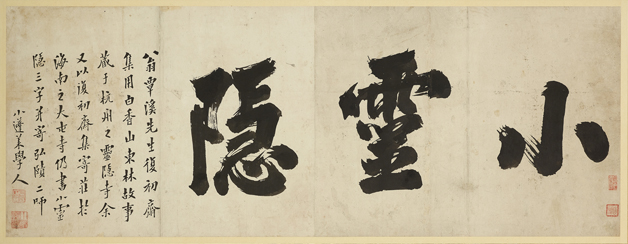 小靈隱
翁覃溪先生復初齋
集用白香山東林故事
藏于杭州之靈隱寺余
又以復初齋集寄莊於
海南之大芚寺仍書小靈
隱三字寄弘賾二師
小蓬萊學人